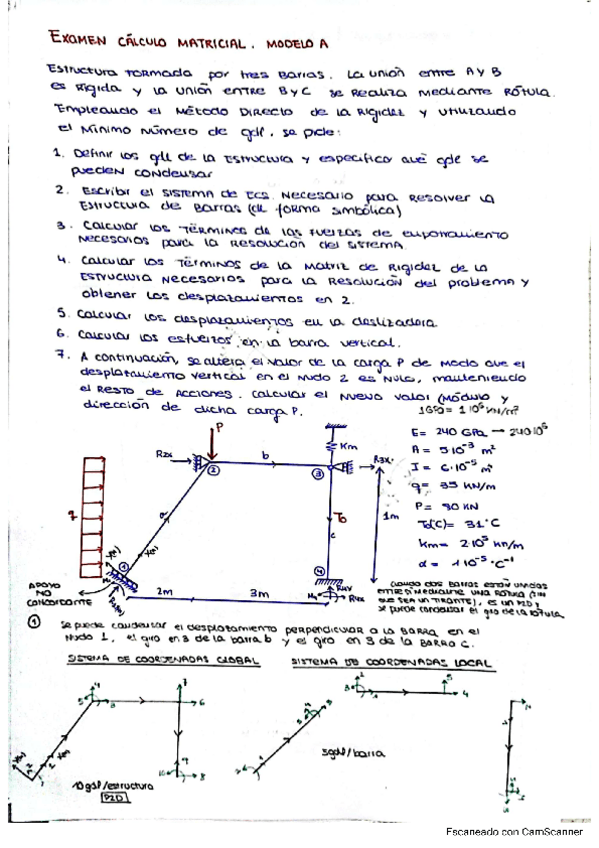 EXAMEN CÁLCULO MATRICIAL. MODELO A
Estructura formada por tres barras. La unión entre A y B
es rígida y la unión entre B y C se realiza mediante rótula.
Empleando el Método Directo de la Rigidez y utilizando
el mínimo número de gdl, se pide:
1. Definir los gdl de la estructura y especifica qué gdl se
pueden condensar
2. Escribir el sistema de ecs. necesario para resolver la
estructura de barras (en forma simbólica)
3. Calcular los términos de las fuerzas de empotramiento
necesarios para la resolución del sistema.
4. Calcular los términos de la matriz de rigidez de la
estructura necesarios para la resolución del problema y
obtener los desplazamientos en 2.
5. Calcular los desplazamientos en la deslizadera.
6. Calcular los esfuerzos en la barra vertical.
7. A continuación, se altera el valor de la carga P de modo que el
desplazamiento vertical en el nudo 2 es nulo, manteniendo
el resto de acciones. Calcular el nuevo valor (módulo y
dirección de dicha carga P.
1GPa = 10⁶ kN/m²
E= 240 GPa → 240·10⁶
A = 5·10⁻³ m²
I = 6·10⁻⁵ m⁴
q = 35 kN/m
P = 90 kN
T0(C)= 31°C
Km = 2·10⁵ kn/m
α = 1·10⁻⁵ °C⁻¹
P
R2x
b
2
Km
3
R3x
a
T0
c
1m
q
1
4
R4y
M4
R4x
2m
3m
APOYO
NO
CONCORDANTE
Cuando dos barras están unidas
entre sí mediante una rótula (sin
que sea un tirante), es un P2D y
se puede condensar el giro de la rótula.
1 Se puede condensar el desplazamiento perpendicular a la barra en el
nudo 1, el giro en 3 de la barra b y el giro en 3 de la barra c.
SISTEMA DE COORDENADAS GLOBAL
SISTEMA DE COORDENADAS LOCAL
4
5
3
7
6
9
10
8
2
1
10gdl/estructura
P2D
3gdl/barra
2
3
1
5
4
Escaneado con CamScanner